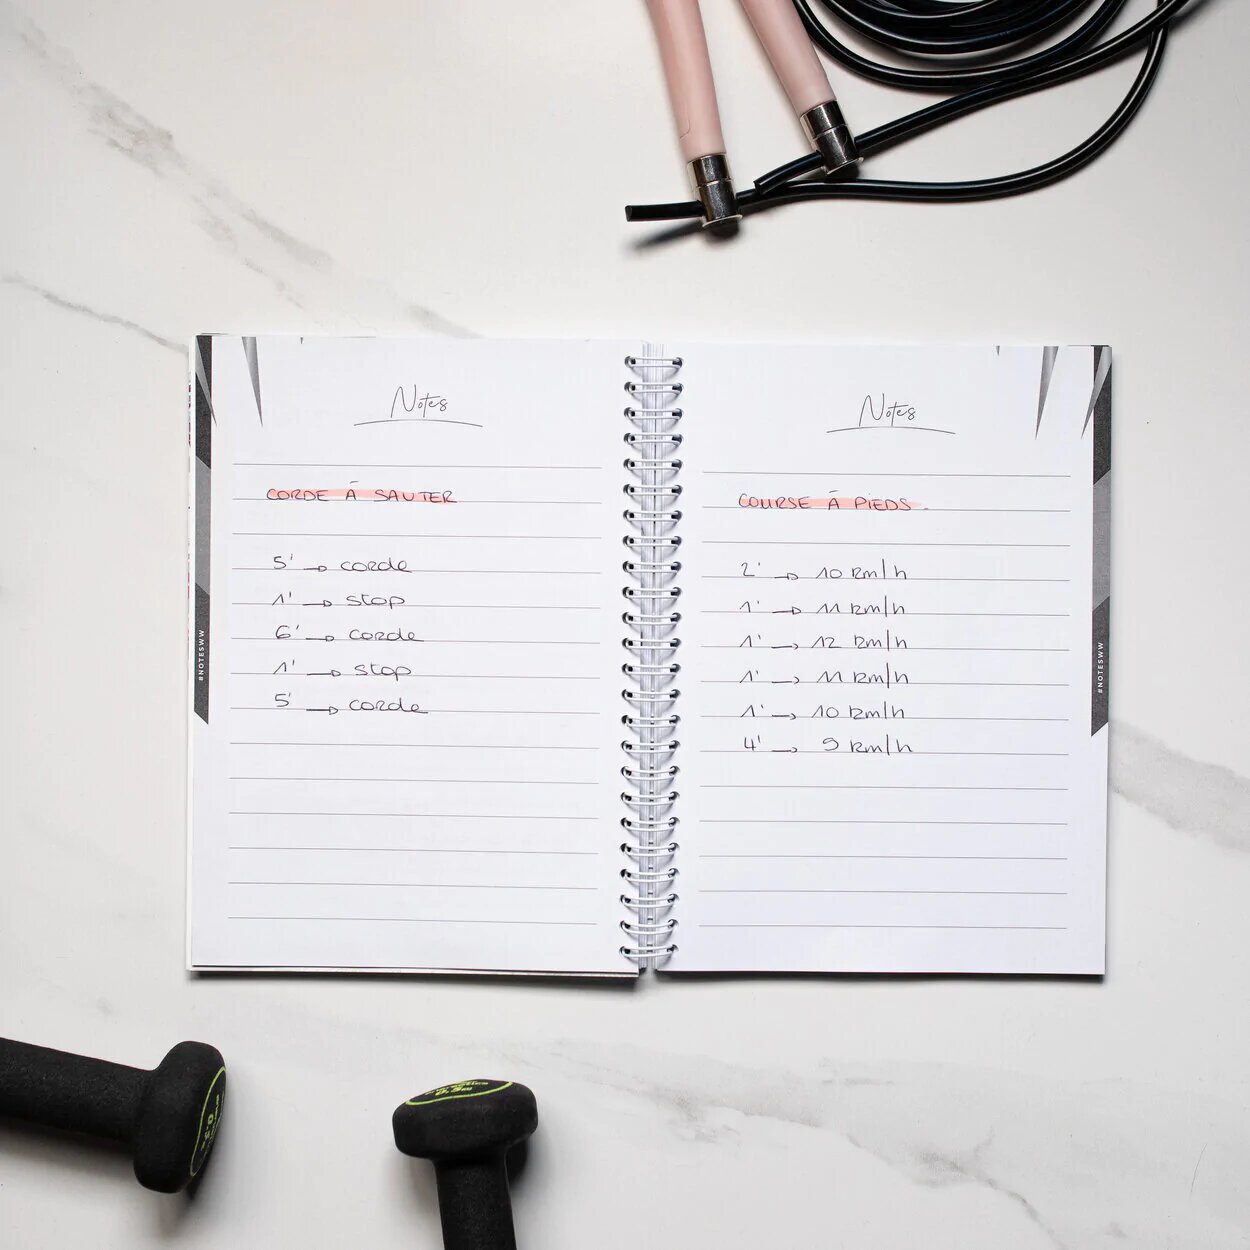 Notes
CORDE À SAUTER
5' → corde
1' → stop
6' → corde
1' → stop
5' → corde
#NOTESWW
Notes
COURSE À PIEDS.
2' → 10 km/h
1' → 11 km/h
1' → 12 km/h
1' → 11 km/h
1' → 10 km/h
4' → 9 km/h
#NOTESWW